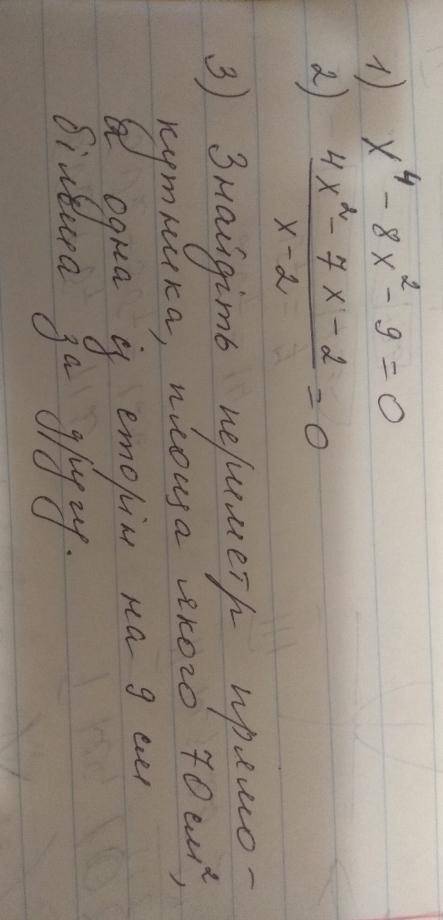 1) x⁴ - 8x² - 9 = 0
2) 4x² - 7x - 2 = 0
x - 2
3) Знайдіть периметр прямо-
кутника, площа якого 70 см²,
а одна із сторін на 9 см
більша за другу.